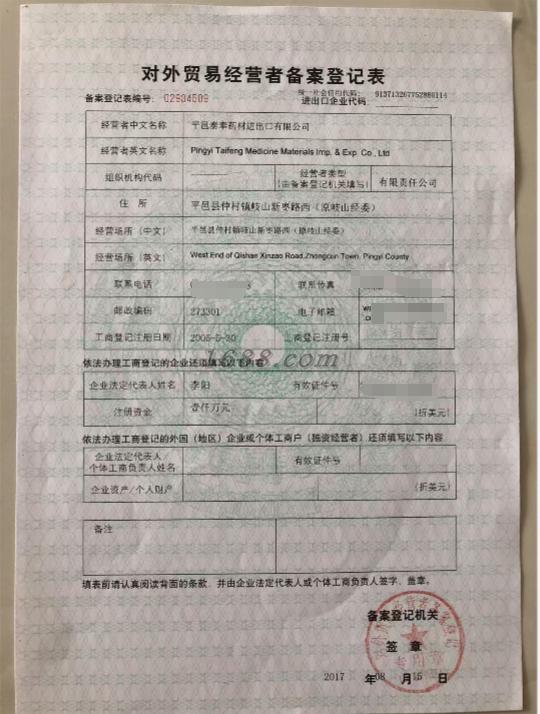 对外贸易经营者备案登记表
统一社会信用代码: 913713267752880114
备案登记表编号: 02904509 进出口企业代码
经营者中文名称 平邑泰丰药材进出口有限公司
经营者英文名称 Pingyi Taifeng Medicine Materials Imp. & Exp. Co., Ltd
组织机构代码 经营者类型 (由备案登记机关填写) 有限责任公司
住 所 平邑县仲村镇岐山新枣路西（原岐山经委）
经营场所（中文） 平邑县仲村镇岐山新枣路西（原岐山经委）
经营场所（英文） West End of Qishan Xinzao Road,Zhongcun Town, Pingyi County
联系电话 联系传真
邮政编码 273301 电子邮箱
工商登记注册日期 2005-5-30 工商登记注册号
1688.com
依法办理工商登记的企业还须填写以下内容
企业法定代表人姓名 李阳 有效证件号
注册资金 壹仟万元 (折美元)
依法办理工商登记的外国（地区）企业或个体工商户（独资经营者）还须填写以下内容
企业法定代表人/ 个体工商负责人姓名 有效证件号
企业资产/个人财产 (折美元)
备注
填表前请认真阅读背面的条款，并由企业法定代表人或个体工商负责人签字、盖章。
备案登记机关
签 章
专用章
2017 年 08 月 15 日